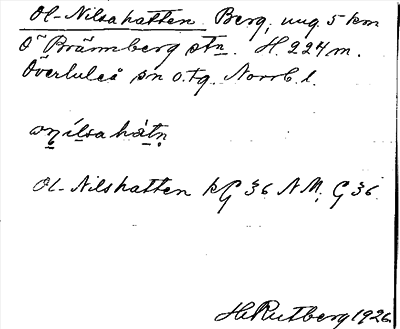 Ol-Nilsahatten. Berg, ung 5 km
Ö Brännberg stn. H. 224 m.
Överluleå sn o. tg. Norrb. l.
Ol-Nilshatten kG 36 NM; G 36.
H. Rutberg 1926